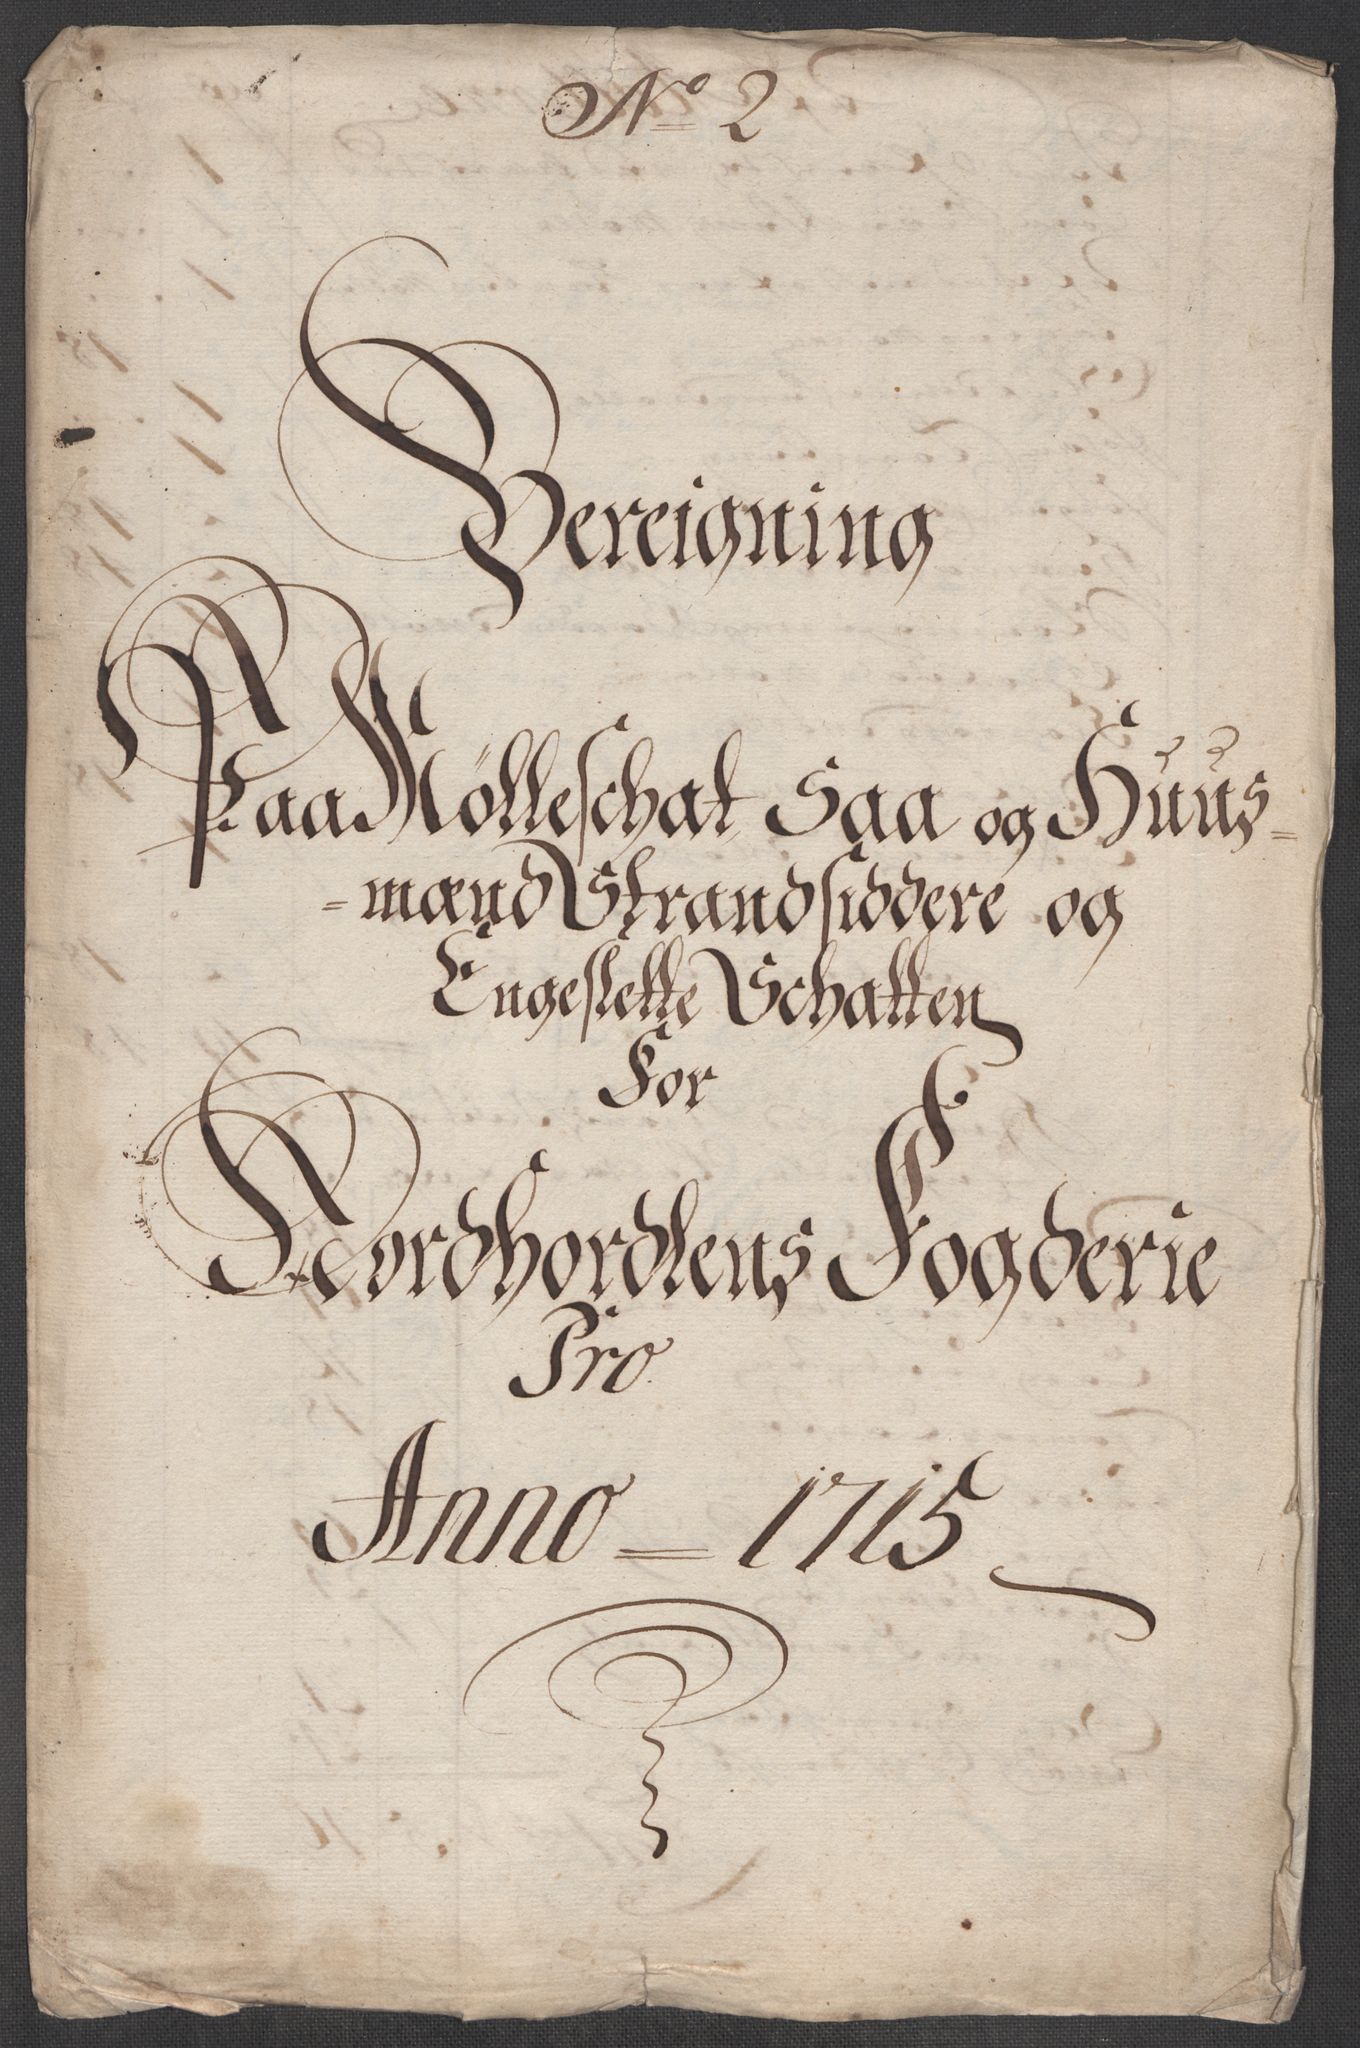 No 2
Bereigning
Paa Mølleschat Saa og Huus=
=mænd Strandsiddere og
Engeslette Schatten
For
Nordhordlens Fogderie
Pro
Anno = 1715